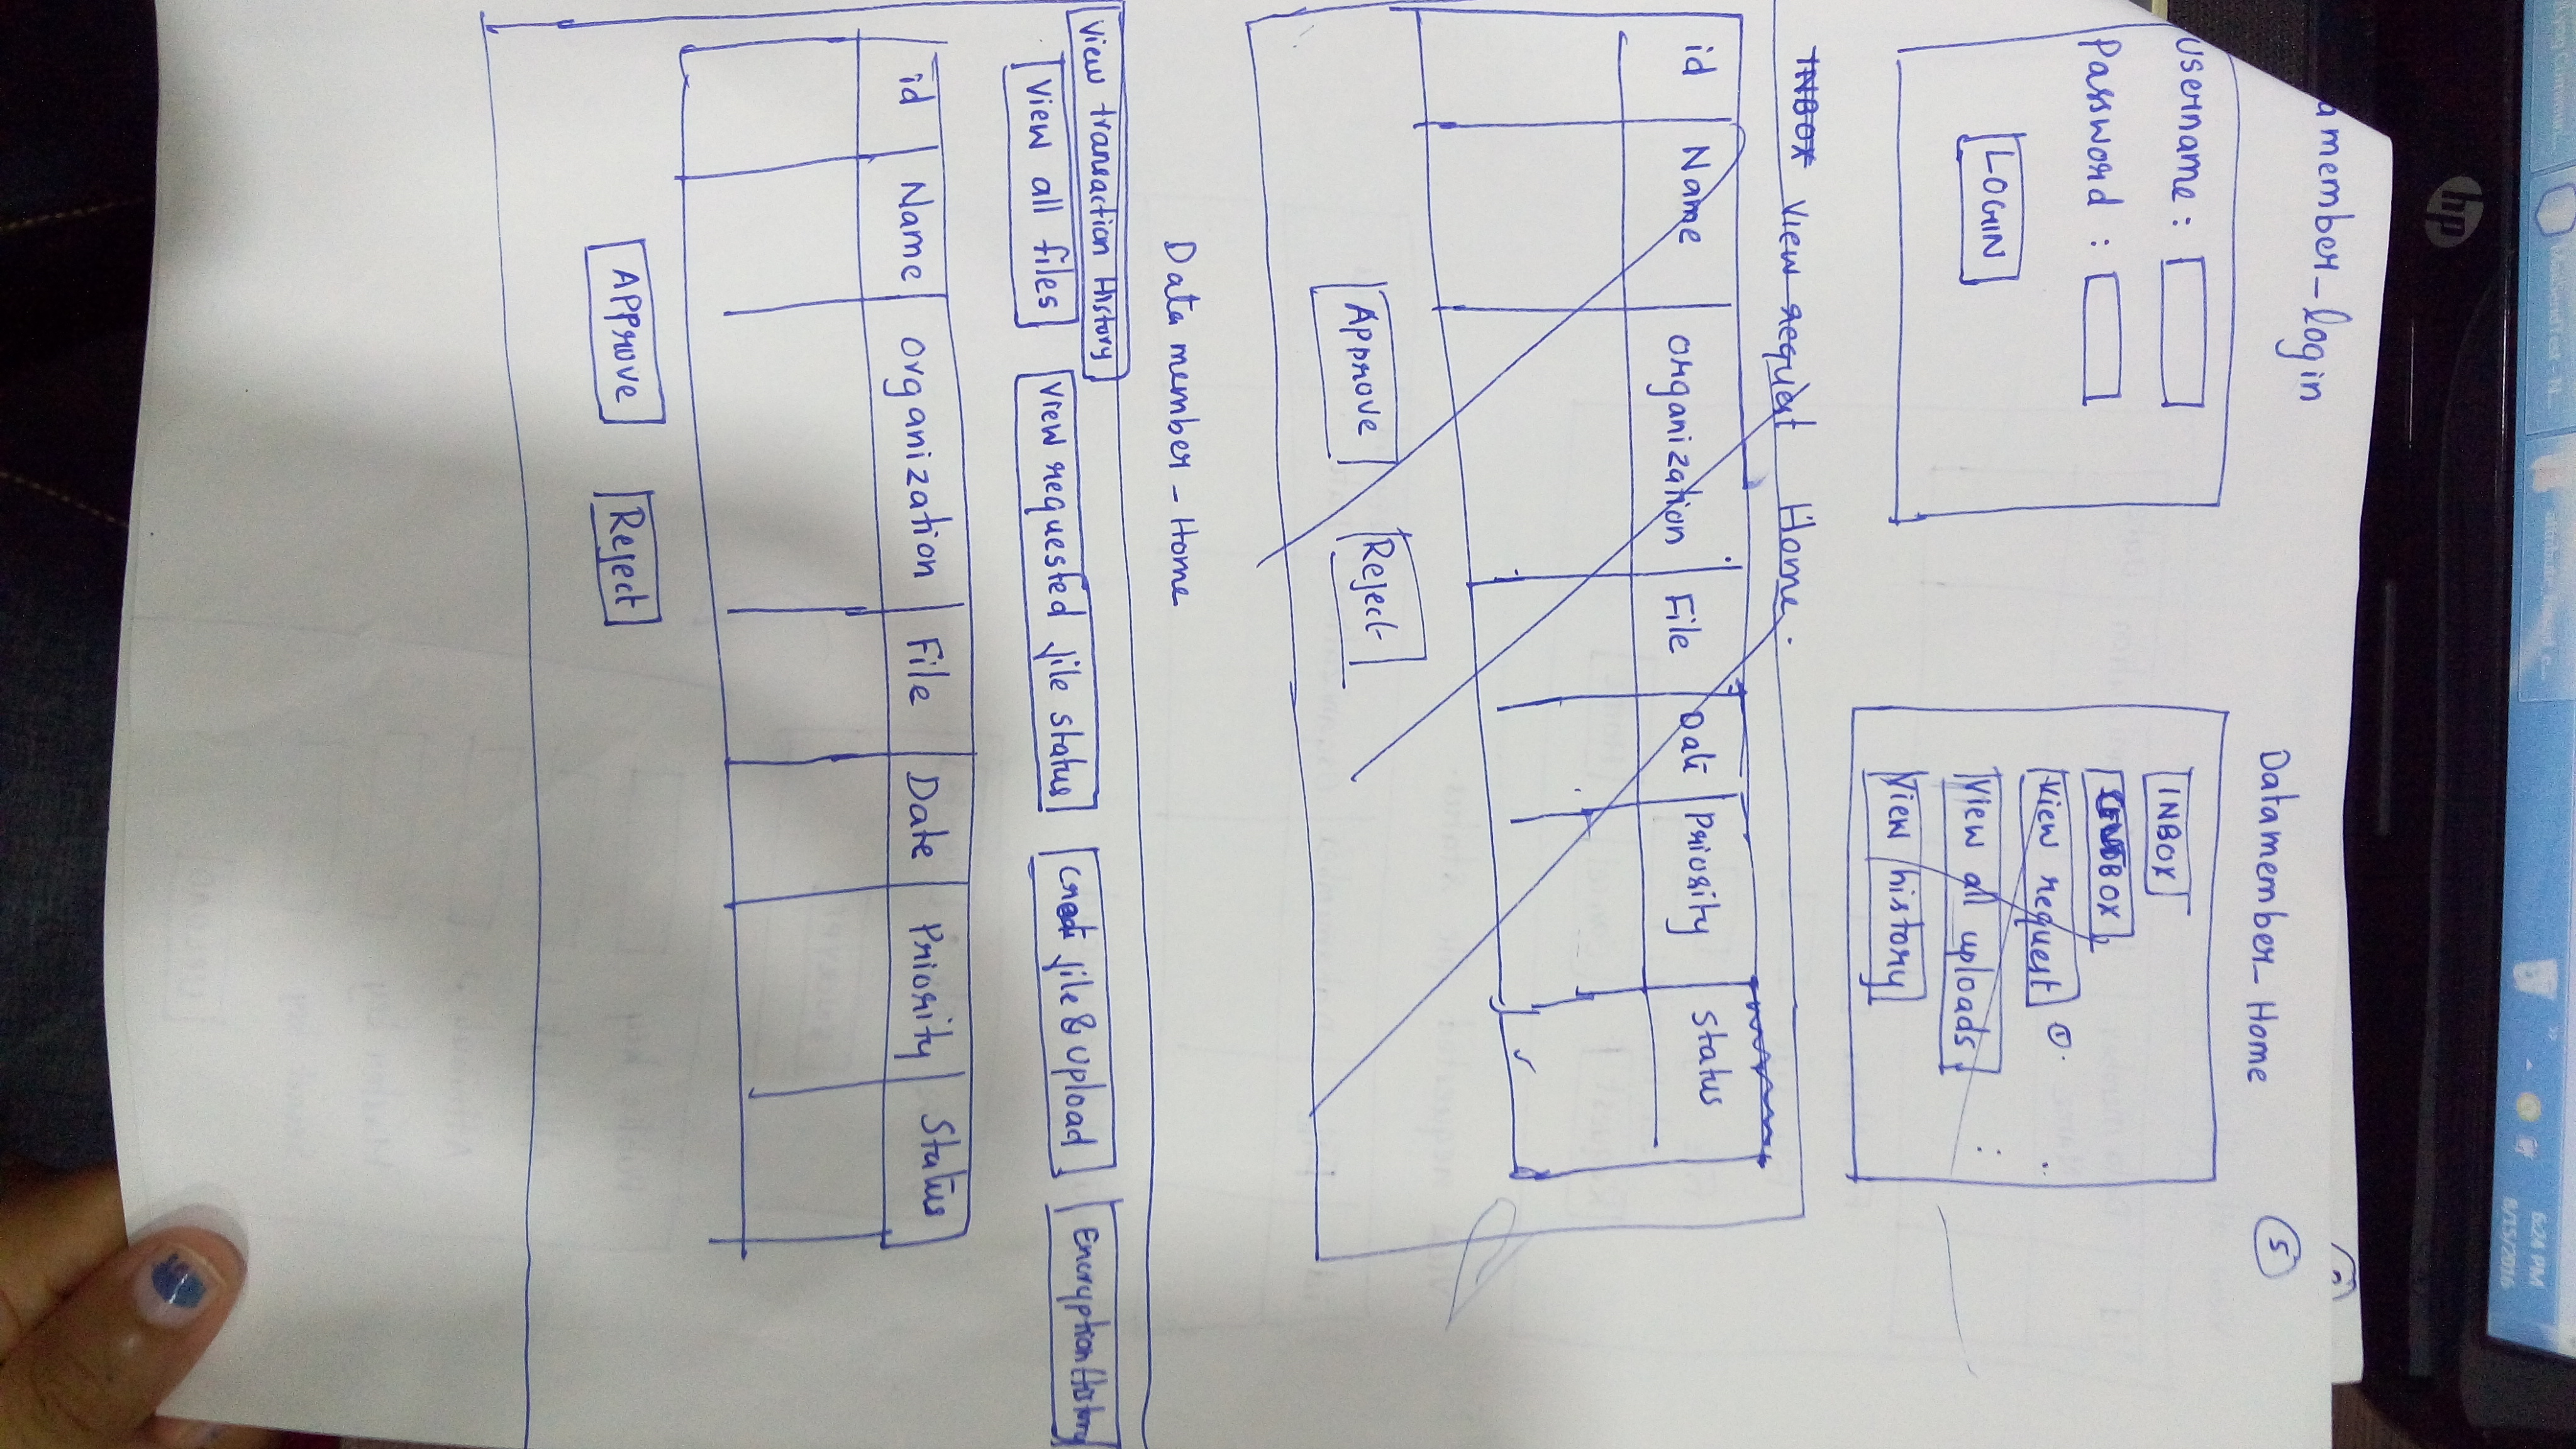 a member_login
Datamember_Home
5
Username :
Password :
LOGIN
INBOX
View request
View all uploads
View history
INBOX View request Home.
id Name Organization File Date Priority Status
Approve Reject
Data member - Home
View transaction History
View all files View requested file status Creat file & Upload Encryption History
id Name Organization File Date Priority Status
Approve Reject
hp
6:24 PM
8/15/2016